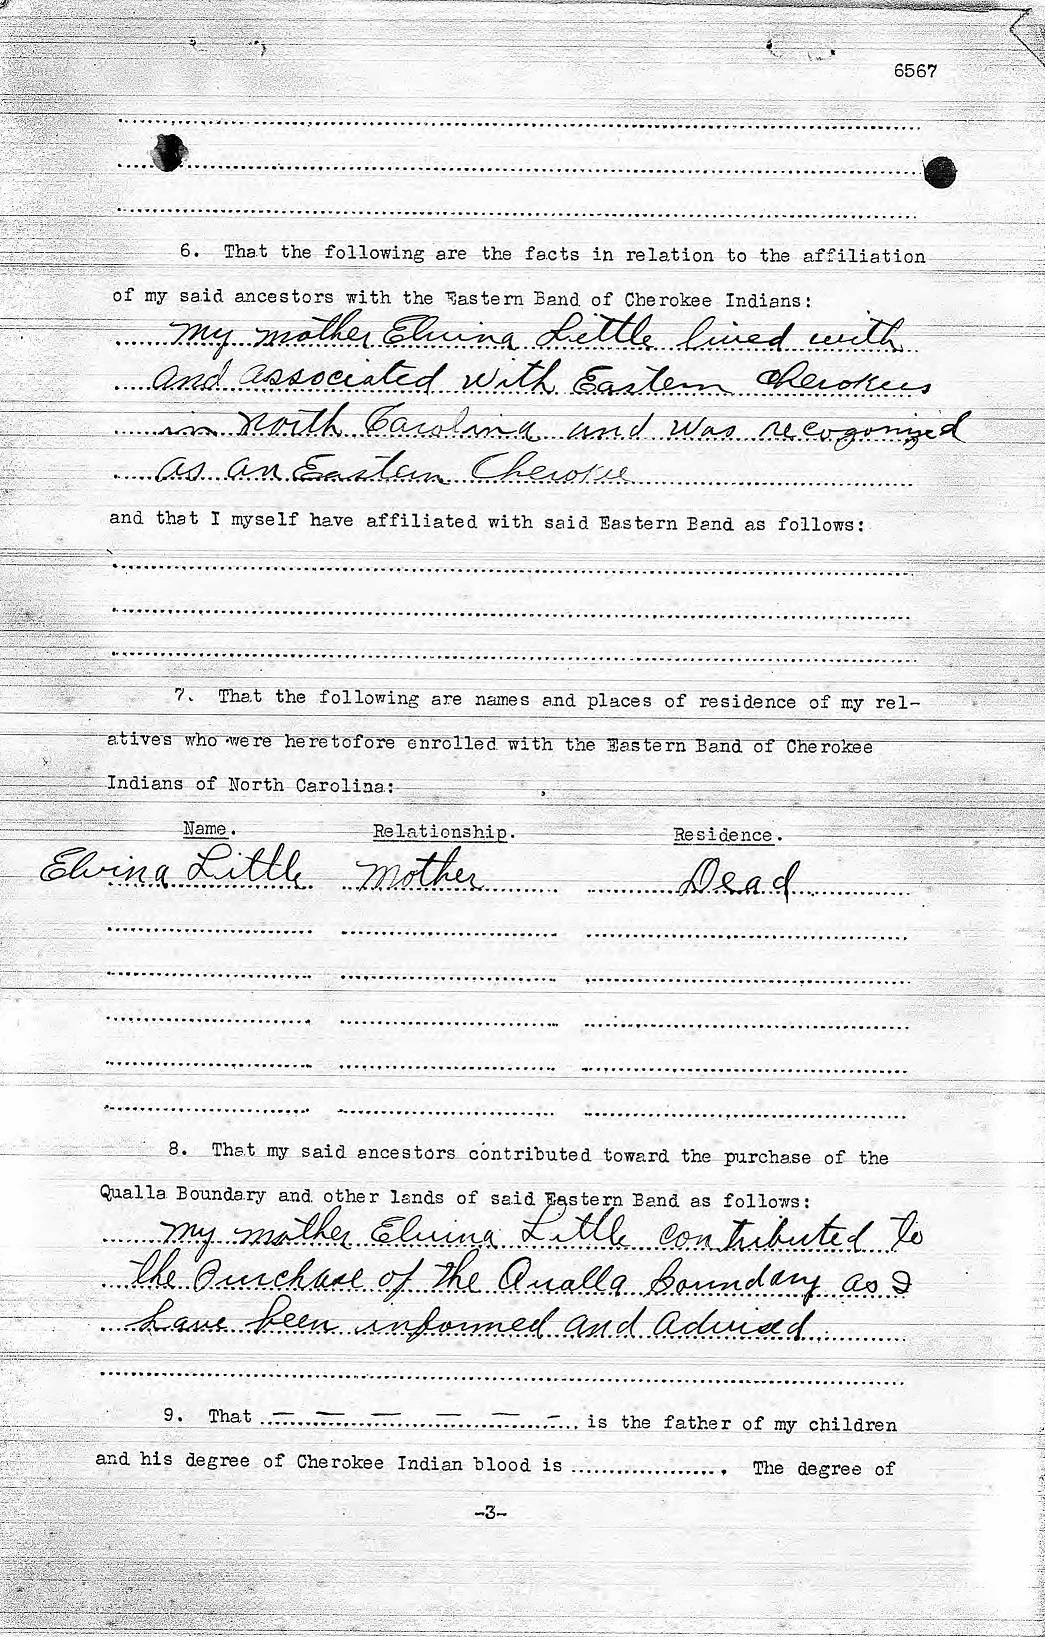 6567
6. That the following are the facts in relation to the affiliation
of my said ancestors with the Eastern Band of Cherokee Indians:
My mother Elvina Little lived with
and associated with Eastern Cherokees
in North Carolina and was recogonized
as an Eastern Cherokee
and that I myself have affiliated with said Eastern Band as follows:
7. That the following are names and places of residence of my rel-
atives who were heretofore enrolled with the Eastern Band of Cherokee
Indians of North Carolina:
Name. Relationship. Residence.
Elvina Little Mother Dead
8. That my said ancestors contributed toward the purchase of the
Qualla Boundary and other lands of said Eastern Band as follows:
My mother Elvina Little contributed to
the Purchase of the Qualla Boundary as I
have been informed and advised.
9. That — — — — — — is the father of my children
and his degree of Cherokee Indian blood is ..................... The degree of
-3-